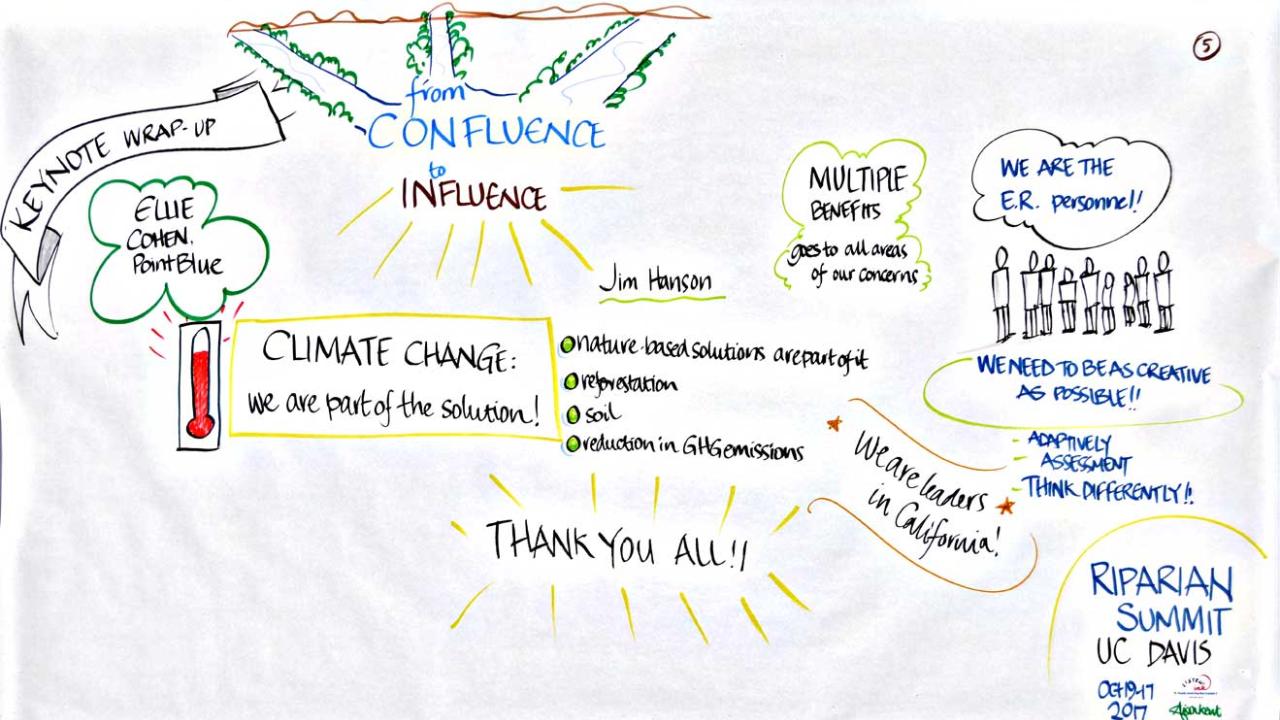 5
KEYNOTE WRAP-UP
from
CONFLUENCE
to
INFLUENCE
ELLIE
COHEN,
Point Blue
CLIMATE CHANGE:
we are part of the solution!
Jim Hanson
nature-based solutions are part of it
reforestation
soil
reduction in GHG emissions
MULTIPLE
BENEFITS
goes to all areas
of our concerns
WE ARE THE
E.R. personnel!
WE NEED TO BE AS CREATIVE
AS POSSIBLE!!
- ADAPTIVELY
- ASSESSMENT
- THINK DIFFERENTLY!!
We are leaders
in California!
THANK YOU ALL!!
RIPARIAN
SUMMIT
UC DAVIS
2017